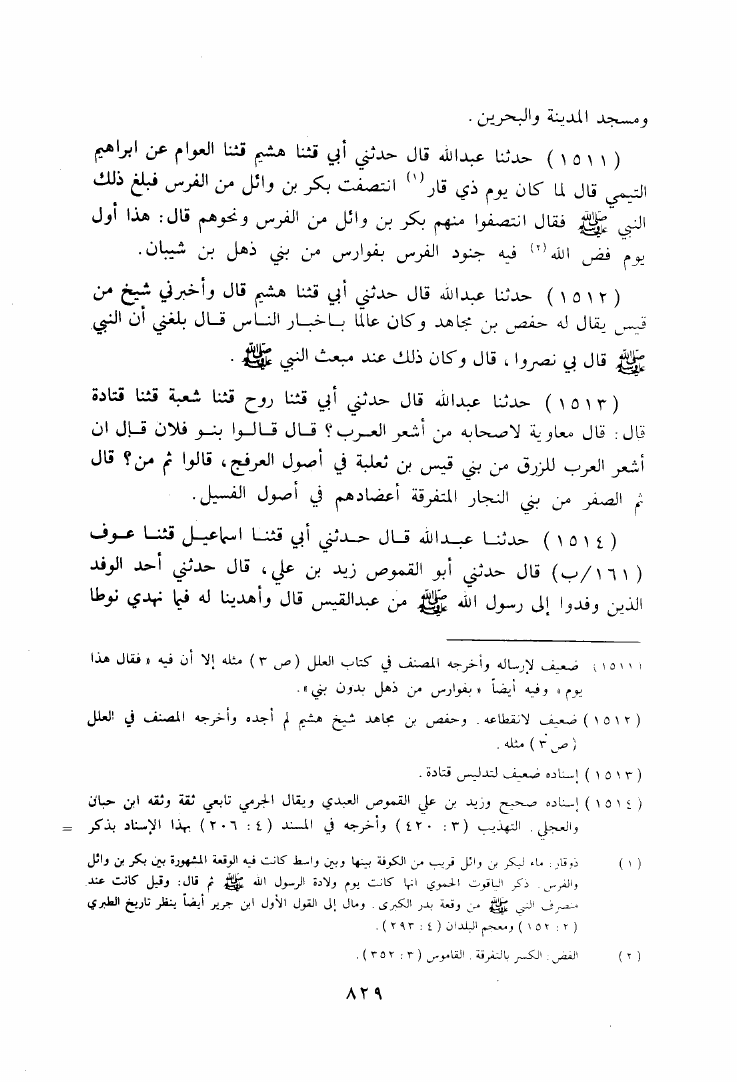 ومسجد المدينة والبحرين .
(١٥١١) حدثنا عبدالله قال حدثني أبي قثنا هشيم قثنا العوام عن ابراهيم
التيمي قال لما كان يوم ذي قار(١) انتصفت بكر بن وائل من الفرس فبلغ ذلك
النبي ﷺ فقال انتصفوا منهم بكر بن وائل من الفرس ونحوهم قال: هذا أول
يوم فض الله(٢) فيه جنود الفرس بفوارس من بني ذهل بن شيبان.
(١٥١٢) حدثنا عبدالله قال حدثني أبي قثنا هشيم قال وأخبرني شيخ من
قيس يقال له حفص بن مجاهد وكان عالما بـاخبـار النـاس قـال بلغني أن النبي
ﷺ قال بي نصروا، قال وكان ذلك عند مبعث النبي ﷺ .
(١٥١٣) حدثنا عبدالله قال حدثني أبي قثنا روح قثنا شعبة قثنا قتادة
قال: قال معاوية لاصحابه من أشعر العـرب؟ قـال قـالـوا بنـو فلان قـال ان
أشعر العرب للزرق من بني قيس بن ثعلبة في أصول العرفج، قالوا ثم من؟ قال
ثم الصفر من بني النجار المتفرقة أعضادهم في أصول الفسيل.
(١٥١٤) حدثنـا عبـدالله قـال حـدثني أبي قثنـا اسماعيـل قثنـا عـوف
(١٦١/ب) قال حدثني أبو القموص زيد بن علي، قال حدثني أحد الوفد
الذين وفدوا إلى رسول الله ﷺ من عبدالقيس قال وأهدينا له فيما نهدي نوطا
(١٥١١) ضعيف لإرساله وأخرجه المصنف في كتاب العلل (ص ٣) مثله إلا أن فيه « فقال هذا
يوم » وفيه أيضاً « بفوارس من ذهل بدون بني ».
(١٥١٢) ضعيف لانقطاعه . وحفص بن مجاهد شيخ هشيم لم أجده وأخرجه المصنف في العلل
(ص ٣) مثله .
(١٥١٣) إسناده ضعيف لتدليس قتادة .
(١٥١٤) إسناده صحيح وزيد بن علي القموص العبدي ويقال الجرمي تابعي ثقة وثقه ابن حبان
والعجلي. التهذيب (٣ : ٤٢٠) وأخرجه في المسند (٤ : ٢٠٦) بهذا الإسناد بذكر =
(١) ذوقار: ماء لبكر بن وائل قريب من الكوفة بينها وبين واسط كانت فيه الوقعة المشهورة بين بكر بن وائل
والفرس. ذكر الياقوت الحموي انها كانت يوم ولادة الرسول الله ﷺ ثم قال: وقيل كانت عند
منصرف النبي ﷺ من وقعة بدر الكبرى. ومال إلى القول الأول ابن جرير أيضاً ينظر تاريخ الطبري
(٢ : ١٥٢) ومعجم البلدان (٤ : ٢٩٣).
(٢) الفض: الكسر بالتفرقة. القاموس (٣ : ٣٥٢).
٨٢٩